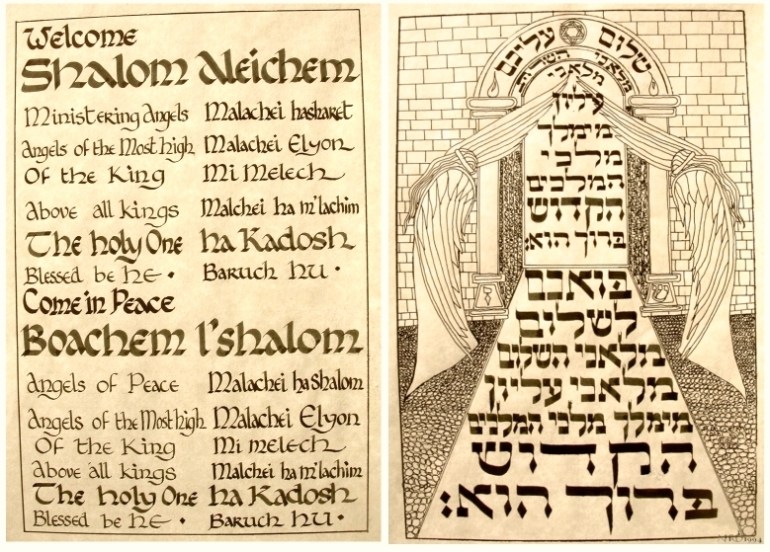 Welcome
Shalom Aleichem
Ministering Angels Malachei hasharet
Angels of the Most high Malachei Elyon
Of the King Mi Melech
Above all kings Malchei ha m'lachim
The holy One ha Kadosh
Blessed be he · Baruch hu ·
Come in Peace
Boachem l'shalom
Angels of Peace Malachei ha Shalom
Angels of the Most high Malachei Elyon
Of the King Mi melech
Above all kings Malchei ha m'lachim
The holy One ha Kadosh
Blessed be he · Baruch hu ·
שלום עליכם
מלאכי השרת
מלאכי
עליון
מימלך
מלכי
המלכים
הקדוש
ברוך הוא:
בואכם
לשלום
מלאכי השלום
מלאכי עליון
מימלך מלכי המלכים
הקדוש
ברוך הוא: